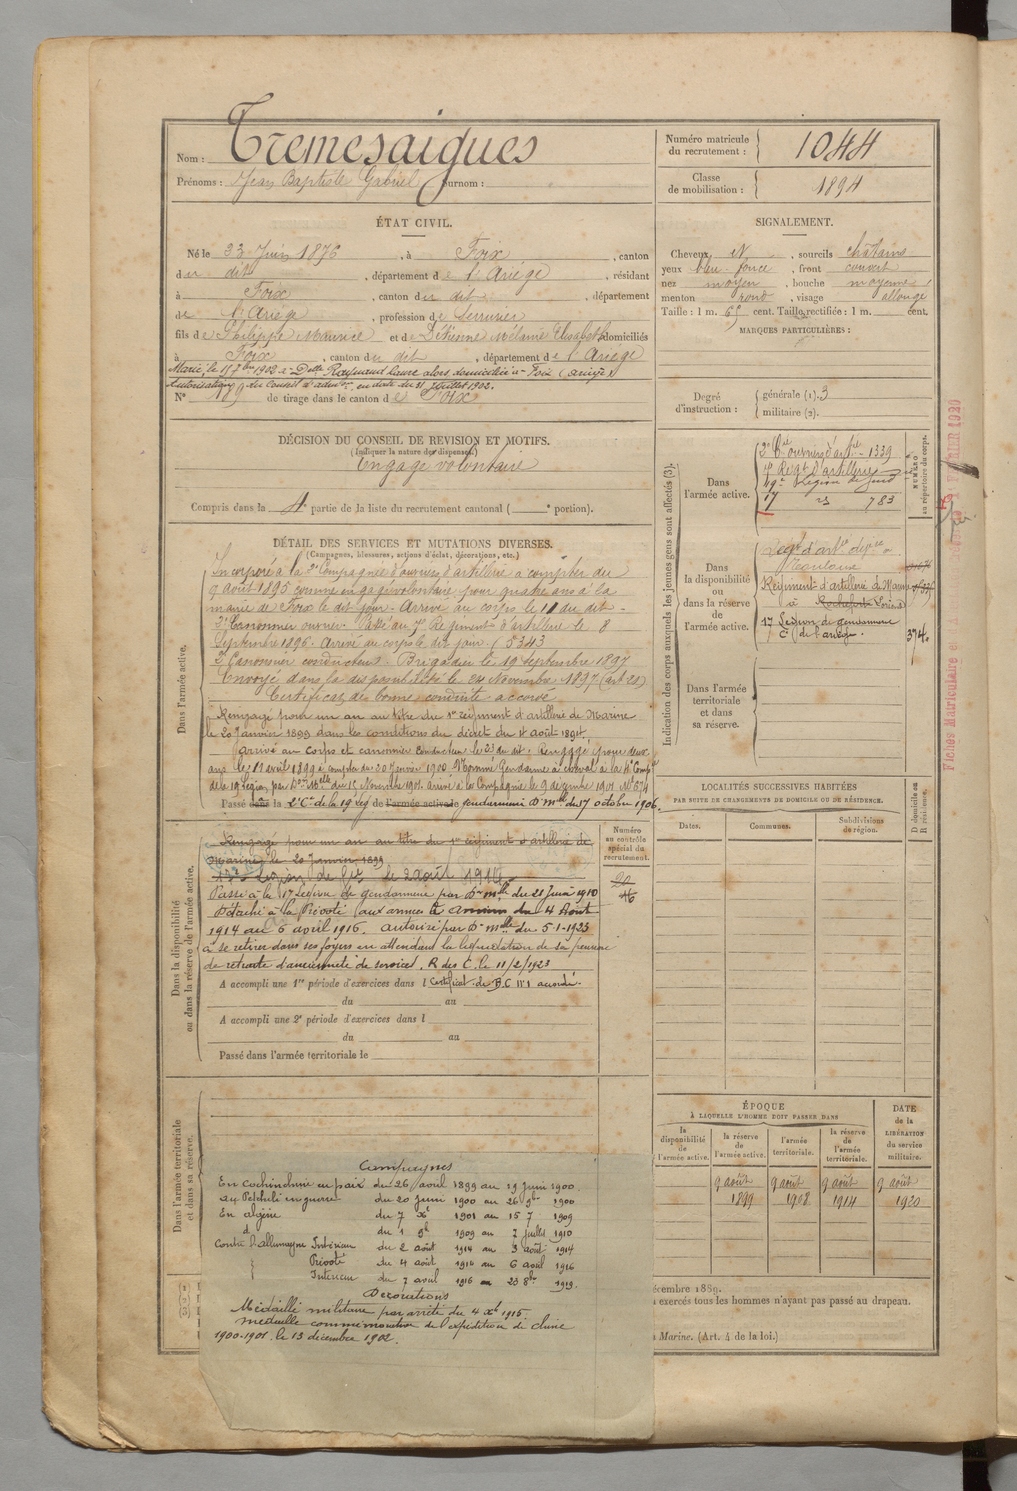 Nom : Tremesaigues
Prénoms : Jean Baptiste Gabriel Surnom :
Numéro matricule du recrutement : 1044
Classe de mobilisation : 1894
ÉTAT CIVIL.
Né le 23 Juin 1876, à Foix, canton
du dit, département de l'Ariège, résidant
à Foix, canton du dit, département
de l'Ariège, profession de Serrurier
fils de Philippe Maurice et de Mélanie Elisabeth domiciliés
à Foix, canton du dit, département de l'Ariège
Marié, le 15 1902 à Delle Raynaud Laure alors domiciliée à Foix (Ariège)
Autorisation du Conseil d'admon en date du 31 Juillet 1902.
N° 89 de tirage dans le canton de Foix
SIGNALEMENT.
Cheveux N, sourcils châtains
yeux bleu foncé, front couvert
nez moyen, bouche moyenne
menton rond, visage allongé
Taille : 1 m. 65 cent. Taille rectifiée : 1 m. cent.
MARQUES PARTICULIÈRES :
Degré d'instruction : générale (1). 3
militaire (2).
DÉCISION DU CONSEIL DE REVISION ET MOTIFS.
(Indiquer la nature des dispenses.)
Engagé volontaire
Compris dans la 4e partie de la liste du recrutement cantonal ( e portion).
DÉTAIL DES SERVICES ET MUTATIONS DIVERSES.
(Campagnes, blessures, actions d'éclat, décorations, etc.)
Dans l'armée active.
Incorporé à la 2e Compagnie d'ouvriers d'artillerie à compter du
9 août 1895 comme engagé volontaire pour quatre ans à la
mairie de Foix le dit jour. Arrivé au corps le 11 du dit.
2e Canonnier ouvrier. Passé au 7e Régiment d'artillerie le 8
Septembre 1896. Arrivé au corps le dit jour. (5343
2e Canonnier conducteur. Brigadier le 19 Septembre 1897
Envoyé dans la disponibilité le 24 Novembre 1897 (art 21)
Certificat de bonne conduite accordé
Rengagé pour un an au titre du 1er régiment d'artillerie de Marine
le 20 janvier 1899 dans les conditions du décret du 4 août 1894.
Arrivé au Corps et canonnier conducteur le 23 du dit. Rengagé pour deux
ans le 11 avril 1899 à compter du 20 Janvier 1900. Nommé Gendarme à cheval à la 4e Compie
de la 19 Légion par Don Melle du 15 Novembre 1901. arrivé à la Compagnie le 9 décembre 1901 Nle 874
Passé dans la 2e Cie de la 19 Leg de l'armée active de gendarmerie D. Mlle du 17 octobre 1906.
Dans la disponibilité ou dans la réserve de l'armée active.
Rengagé pour un an au titre du 1er régiment d'artillerie de
Marine le 20 Janvier 1899
le 2 août 1914
Passé à la 17 Legion de gendarmerie par D. Mlle du 21 Juin 1910
Détaché à la Prévôté aux armées du 4 Août
1914 au 6 avril 1916. Autorisé par D. Mlle du 5-1-1923
à se retirer dans ses foyers en attendant la liquidation de sa pension
de retraite d'ancienneté de services. R des C. le 11/2/1923
A accompli une 1re période d'exercices dans l Certificat de B.C N°1 accordé.
du au
A accompli une 2e période d'exercices dans l
du au
Passé dans l'armée territoriale le
Numéro au contrôle spécial du recrutement.
20
46
Indication des corps auxquels les jeunes gens sont affectés (3).
NUMÉRO au répertoire du corps.
Dans l'armée active.
2e Cie ouvriers d'artie 1339
7e Régt d'artillerie
19e Légion de Gend
17 783
Dans la disponibilité ou dans la réserve de l'armée active.
Toulouse
Régiment d'artillerie de Marine
à Rochefort Lorient
17 Légion de gendarmerie
Cie de l'ariège. 374.
Dans l'armée territoriale et dans sa réserve.
LOCALITÉS SUCCESSIVES HABITÉES
PAR SUITE DE CHANGEMENTS DE DOMICILE OU DE RÉSIDENCE.
Dates. Communes. Subdivisions de région. D domicile ou R résidence.
ÉPOQUE
À LAQUELLE L'HOMME DOIT PASSER DANS
la disponibilité de l'armée active. la réserve de l'armée active. l'armée territoriale. la réserve de l'armée territoriale.
DATE de la LIBÉRATION du service militaire.
9 août 1899 9 août 1908 9 août 1914 9 août 1920
Dans l'armée territoriale et dans sa réserve.
Campagnes
En Cochinchine en paix du 26 avril 1899 au 19 Juin 1900.
au Petchili en guerre du 20 Juin 1900 au 26 9bre 1900
En algérie du 7 Xbre 1901 au 15 7 1909
d° du 1 9bre 1909 au 7 juillet 1910
Contre l'allemagne Intérieur du 2 août 1914 au 3 août 1914
Prévôté du 4 août 1914 au 6 avril 1916
Intérieur du 7 avril 1916 au 23 8bre 1919.
Décorations
Médaille militaire par arrêté du 4 Xbre 1915.
médaille commémorative de l'expédition de chine
1900-1901. le 13 décembre 1902.
écembre 1889.
exercés tous les hommes n'ayant pas passé au drapeau.
Marine. (Art. 4 de la loi.)